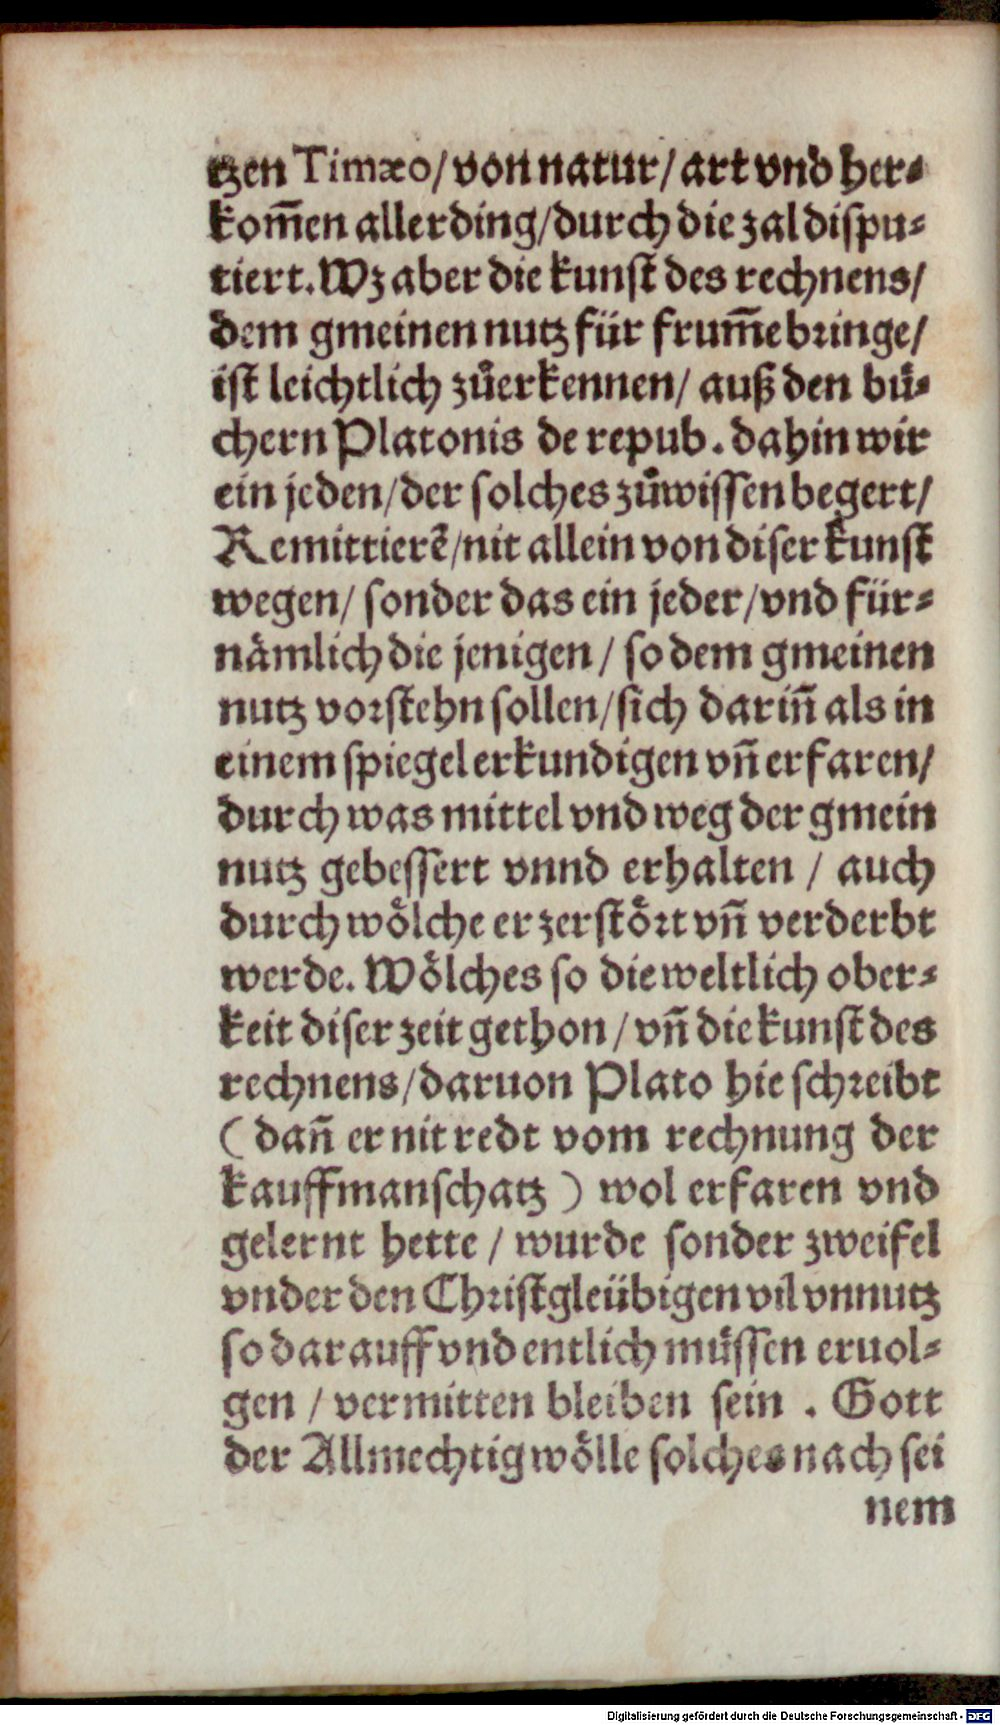 tzen Timæo/ von natur/ art vnd her⸗
kom̃en allerding/ durch die zal dispu⸗
tiert. Wz aber die kunst des rechnens/
dem gmeinen nutz für frum̃e bringe/
ist leichtlich zůerkennen/ auß den bů⸗
chern Platonis de repub. dahin wir
ein jeden/ der solches zůwissen begert/
Remittierẽ/ nit allein von diser kunst
wegen/ sonder das ein jeder/ vnd für⸗
nämlich die jenigen/ so dem gmeinen
nutz vorstehn sollen/ sich darin̄ als in
einem spiegel erkundigen vn̄ erfaren/
durch was mittel vnd weg der gmein
nutz gebessert vnnd erhalten / auch
durch wölche er zerstört vn̄ verderbt
werde. Wölches so die weltlich ober⸗
keit diser zeit gethon/ vn̄ die kunst des
rechnens/ daruon Plato hie schreibt
( dan̄ er nit redt vom rechnung der
kauffmanschatz ) wol erfaren vnd
gelernt hette / wurde sonder zweifel
vnder den Christgleübigen vil vnnutz
so darauff vnd entlich müssen eruol⸗
gen / vermitten bleiben sein . Gott
der Allmechtig wölle solches nach sei
nem
Digitalisierung gefördert durch die Deutsche Forschungsgemeinschaft - DFG